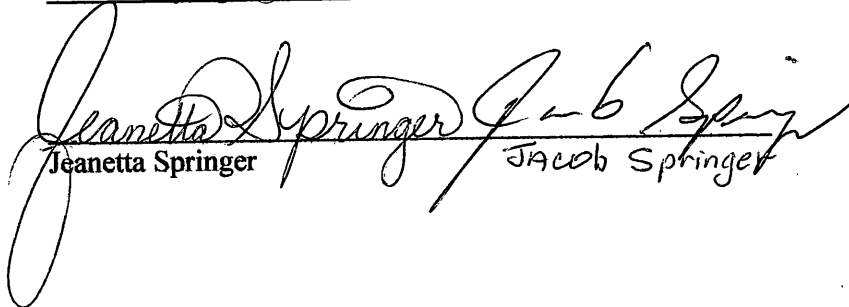 Jeanetta Springer Jacob Springer
Jeanetta Springer JAcob Springer